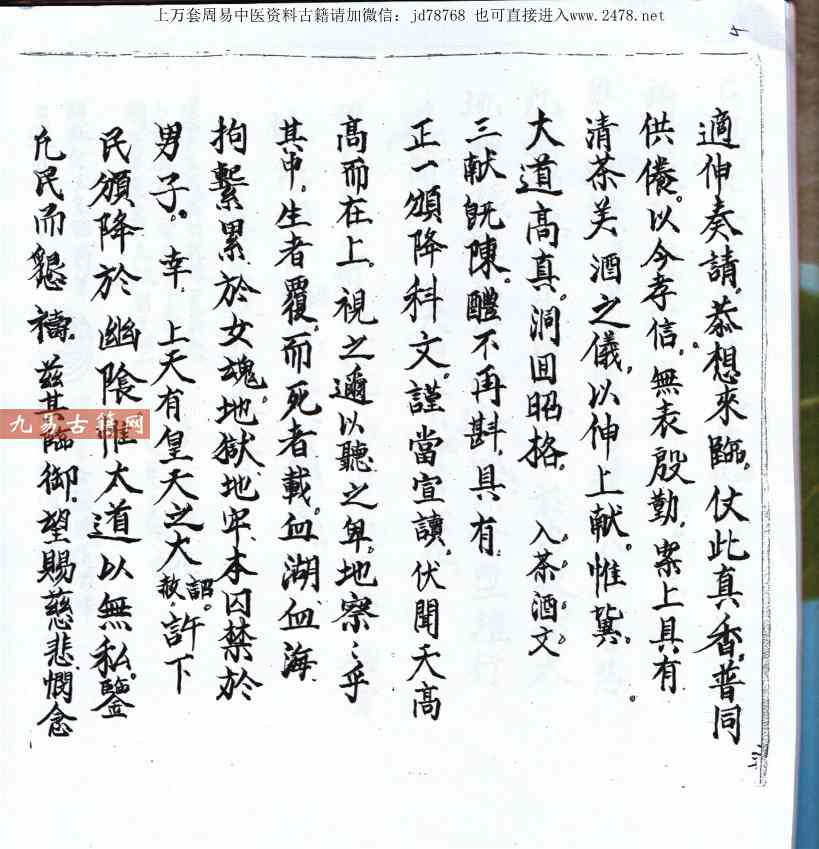 上万套周易中医资料古籍请加微信：jd78768 也可直接进入www.2478.net
適伸奏請。恭想來臨。仗此真香。普同
供養。以今孝信，無表殷勤，案上具有
清茶美酒之儀，以伸上献。惟冀。
大道高真。洞回昭格。入茶酒文。
三献既陳。醴不再斟。具有
正一頒降科文。謹當宣讀。伏聞天高
高而在上。視之邇以聽之卑。地察ミ乎
其中。生者覆。而死者載。血湖血海
拘繫累於女魂。地獄地牢本囚禁於
男子。幸 上天有皇天之大赦詔。許下
民頒降於幽陰惟太道以無私。鑒
凡民而懇禱。茲其臨御。望賜慈悲。憫念
九易古籍网